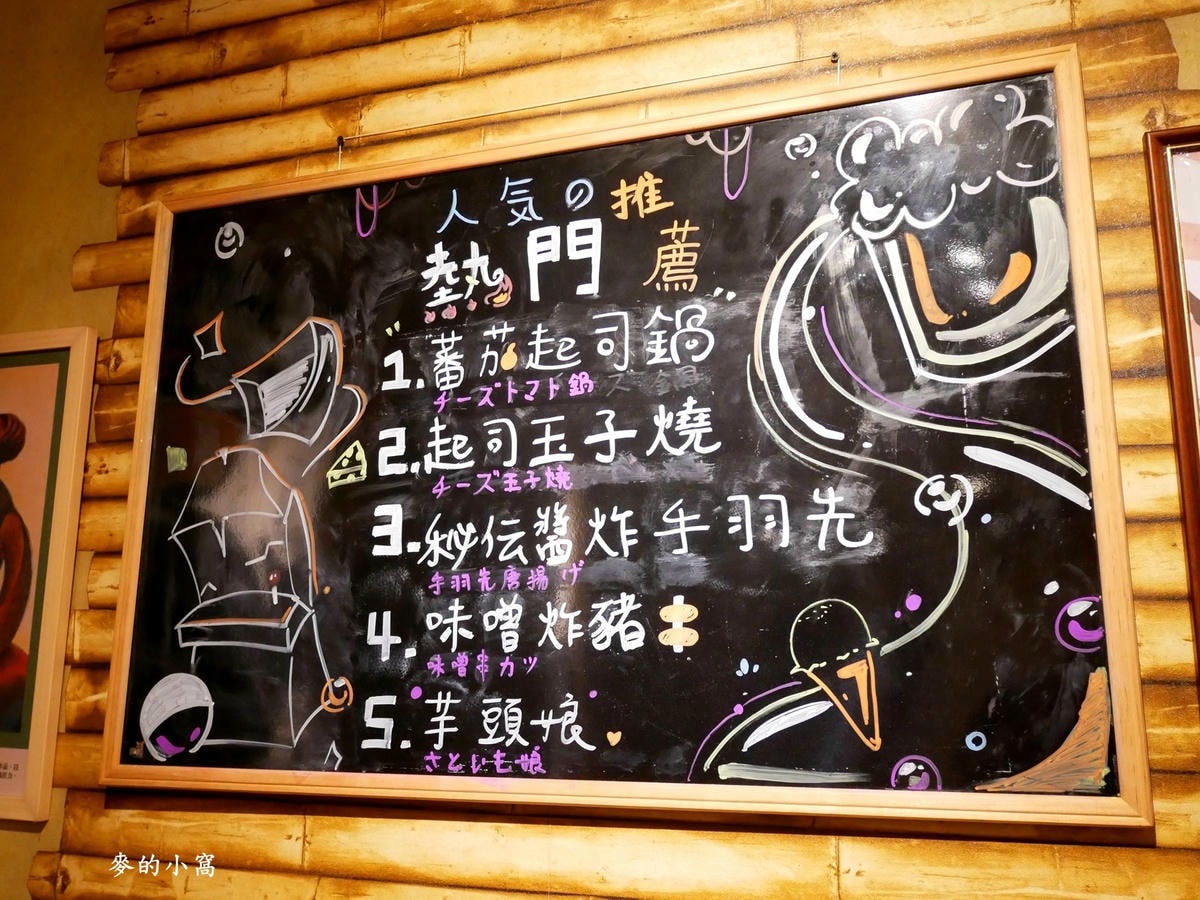 人気の推
熱門薦
1.蕃茄起司鍋
チーズトマト鍋
2.起司玉子燒
チーズ玉子燒
3.秘伝醬炸手羽先
手羽先唐揚げ
4.味噌炸豬串
味噌串カツ
5.芋頭娘
さといも娘
麥的小窩